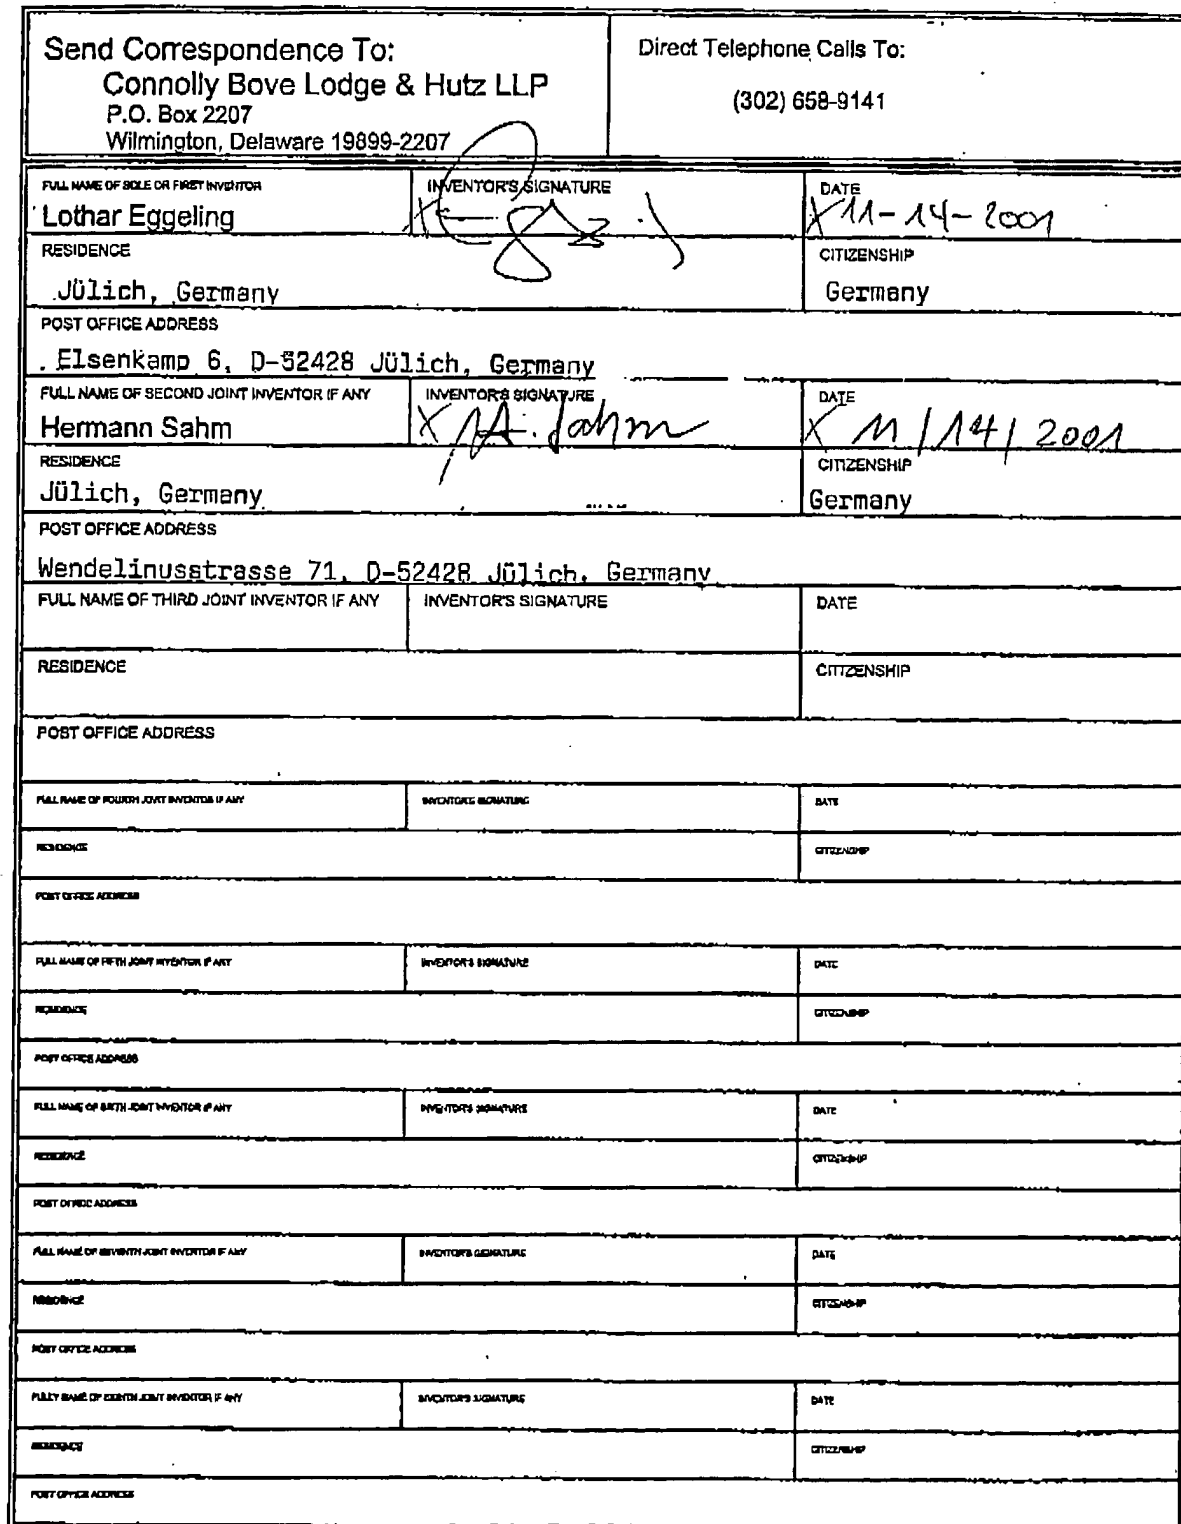 Send Correspondence To:
Connolly Bove Lodge & Hutz LLP
P.O. Box 2207
Wilmington, Delaware 19899-2207
Direct Telephone Calls To:
(302) 658-9141
FULL NAME OF SOLE OR FIRST INVENTOR
Lothar Eggeling
INVENTOR'S SIGNATURE
X
DATE
X 11-14-2001
RESIDENCE
Jülich, Germany
CITIZENSHIP
Germany
POST OFFICE ADDRESS
Elsenkamp 6, D-52428 Jülich, Germany
FULL NAME OF SECOND JOINT INVENTOR IF ANY
Hermann Sahm
INVENTOR'S SIGNATURE
X H. Sahm
DATE
X 11/14/2001
RESIDENCE
Jülich, Germany
CITIZENSHIP
Germany
POST OFFICE ADDRESS
Wendelinusstrasse 71, D-52428 Jülich, Germany
FULL NAME OF THIRD JOINT INVENTOR IF ANY
INVENTOR'S SIGNATURE
DATE
RESIDENCE
CITIZENSHIP
POST OFFICE ADDRESS
FULL NAME OF FOURTH JOINT INVENTOR IF ANY
INVENTOR'S SIGNATURE
DATE
RESIDENCE
CITIZENSHIP
POST OFFICE ADDRESS
FULL NAME OF FIFTH JOINT INVENTOR IF ANY
INVENTOR'S SIGNATURE
DATE
RESIDENCE
CITIZENSHIP
POST OFFICE ADDRESS
FULL NAME OF SIXTH JOINT INVENTOR IF ANY
INVENTOR'S SIGNATURE
DATE
RESIDENCE
CITIZENSHIP
POST OFFICE ADDRESS
FULL NAME OF SEVENTH JOINT INVENTOR IF ANY
INVENTOR'S SIGNATURE
DATE
RESIDENCE
CITIZENSHIP
POST OFFICE ADDRESS
FULLY NAME OF EIGHTH JOINT INVENTOR IF ANY
INVENTOR'S SIGNATURE
DATE
RESIDENCE
CITIZENSHIP
POST OFFICE ADDRESS